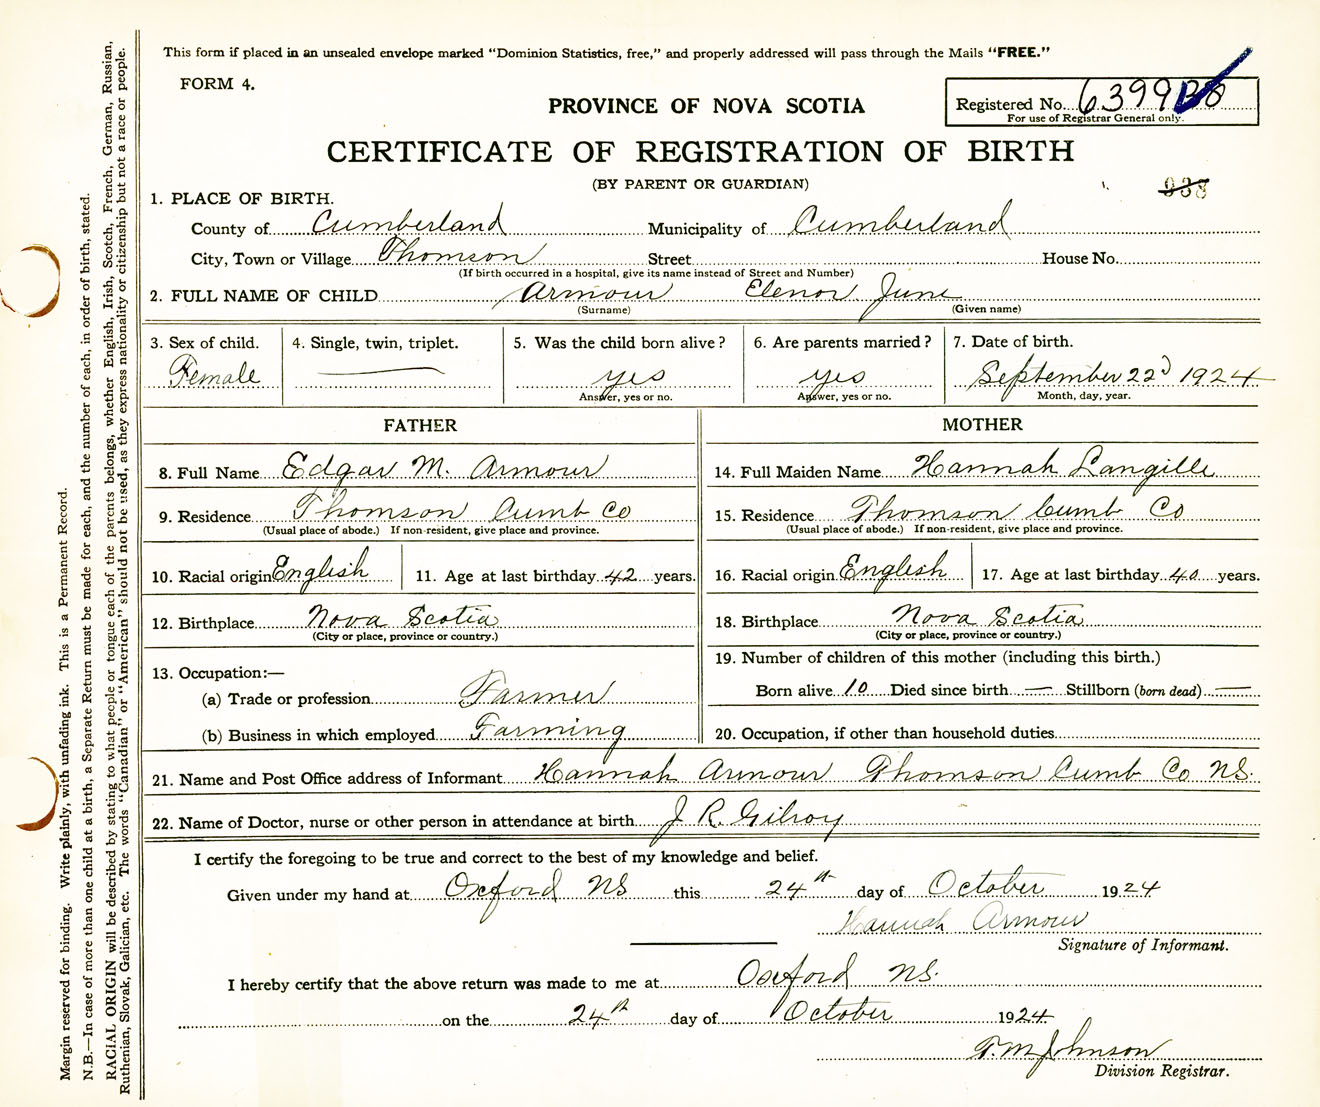 This form if placed in an unsealed envelope marked "Dominion Statistics, free," and properly addressed will pass through the Mails "FREE."
FORM 4.
PROVINCE OF NOVA SCOTIA
Registered No. 6399
For use of Registrar General only.
CERTIFICATE OF REGISTRATION OF BIRTH
(BY PARENT OR GUARDIAN)
938
1. PLACE OF BIRTH.
County of Cumberland Municipality of Cumberland
City, Town or Village Thomson Street House No.
(If birth occurred in a hospital, give its name instead of Street and Number)
2. FULL NAME OF CHILD Armour Elenor June
(Surname) (Given name)
3. Sex of child. 4. Single, twin, triplet. 5. Was the child born alive? 6. Are parents married? 7. Date of birth.
Female yes yes September 22d 1924
Answer, yes or no. Answer, yes or no. Month, day, year.
FATHER MOTHER
8. Full Name Edgar M. Armour 14. Full Maiden Name Hannah Langille
9. Residence Thomson Cumb Co 15. Residence Thomson Cumb Co
(Usual place of abode.) If non-resident, give place and province. (Usual place of abode.) If non-resident, give place and province.
10. Racial origin English 11. Age at last birthday 42 years. 16. Racial origin English 17. Age at last birthday 40 years.
12. Birthplace Nova Scotia 18. Birthplace Nova Scotia
(City or place, province or country.) (City or place, province or country.)
13. Occupation:— 19. Number of children of this mother (including this birth.)
(a) Trade or profession Farmer Born alive 10 Died since birth — Stillborn (born dead) —
(b) Business in which employed Farming 20. Occupation, if other than household duties
21. Name and Post Office address of Informant Hannah Armour Thomson Cumb Co N.S.
22. Name of Doctor, nurse or other person in attendance at birth J R. Gilroy
I certify the foregoing to be true and correct to the best of my knowledge and belief.
Given under my hand at Oxford NS this 24th day of October 1924
Hannah Armour
Signature of Informant.
I hereby certify that the above return was made to me at Oxford NS.
on the 24th day of October 1924
T. M. Johnson
Division Registrar.
Margin reserved for binding. Write plainly, with unfading ink. This is a Permanent Record.
N.B.—In case of more than one child at a birth, a Separate Return must be made for each, and the number of each, in order of birth, stated.
RACIAL ORIGIN will be described by stating to what people or tongue each of the parents belongs, whether English, Irish, Scotch, French, German, Russian,
Ruthenian, Slovak, Galician, etc. The words "Canadian" or "American" should not be used, as they express nationality or citizenship but not a race or people.